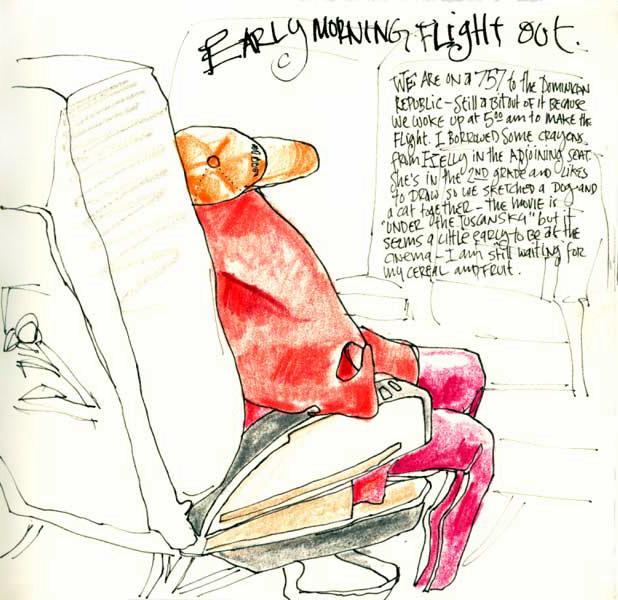 EARLY MORNING FLIGHT OUT.
WE ARE ON A 757 to the DOMINICAN
REPUBLIC - Still A Bit out of it BECAUSE
WE WOKE UP AT 5:00 am to MAKE the
flight. I BORROWED SOME CRAYONS
from KIELLY IN the ADJOINING SEAT.
She's IN the 2ND GRADE AND LIKES
to DRAW so WE SKETCHED A DOG AND
A CAT together - the MOVIE is
"UNDER the TUSCAN SKY" but it
SEEMS A little EARLY to BE At the
CINEMA - I AM still WAITING FOR
MY CEREAL AND FRUIT.